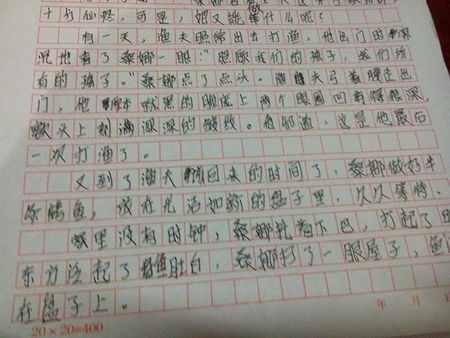 十分仙谔，可是，她又能做什么呢？
有一天，渔夫照常出去打渔，他出门的
沉地看了桑娜一眼："照顾我们的孩子，我们所
有的孩子。"桑娜点了点头。渔夫弓着腰走出
门，他黝黑的脸庞上两个眼圈凹着得很深，
额头上刻满深深的皱纹。他知道，这是他最后
一次打渔了。
又到了渔夫回来的时间了，桑娜做好牛
条鳕鱼，放在光洁如新的盘子里，久久等待。
家里没有时钟，桑娜托着下巴，打起了
东方泛起了鱼肚白，桑娜扫了一眼屋子，鱼
在盘子上。
年 月
20×20=400